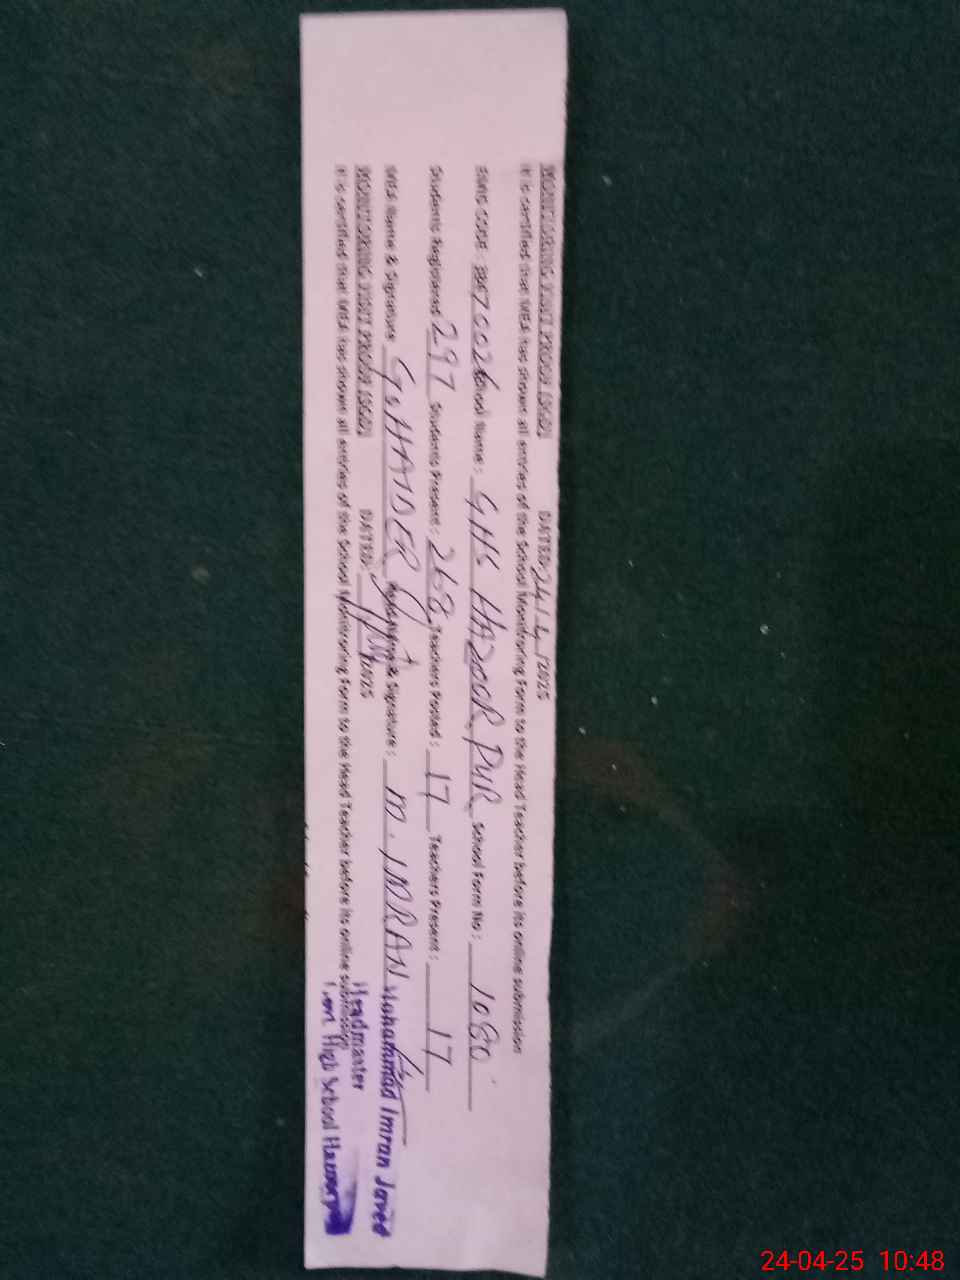 MONITORING VISIT PROOF (SCD) DATED: 24/4/2025
It is certified that MEA has shown all entries of the School Monitroring Form to the Head Teacher before its online submission
EMIS CODE: School Name: GHS HAZOOR PUR School Form No: 1080
Students Registered 297 Students Present: 268 Teachers Posted: 17 Teachers Present: 17
MEA Name & Signature & Signature: M. IMRAN
Mohammad Imran Javed
MONITORING VISIT PROOF (SCD) DATED: /2025
It is certified that MEA has shown all entries of the School Monitroring Form to the Head Teacher before its online submission
Headmaster
High School
24-04-25 10:48